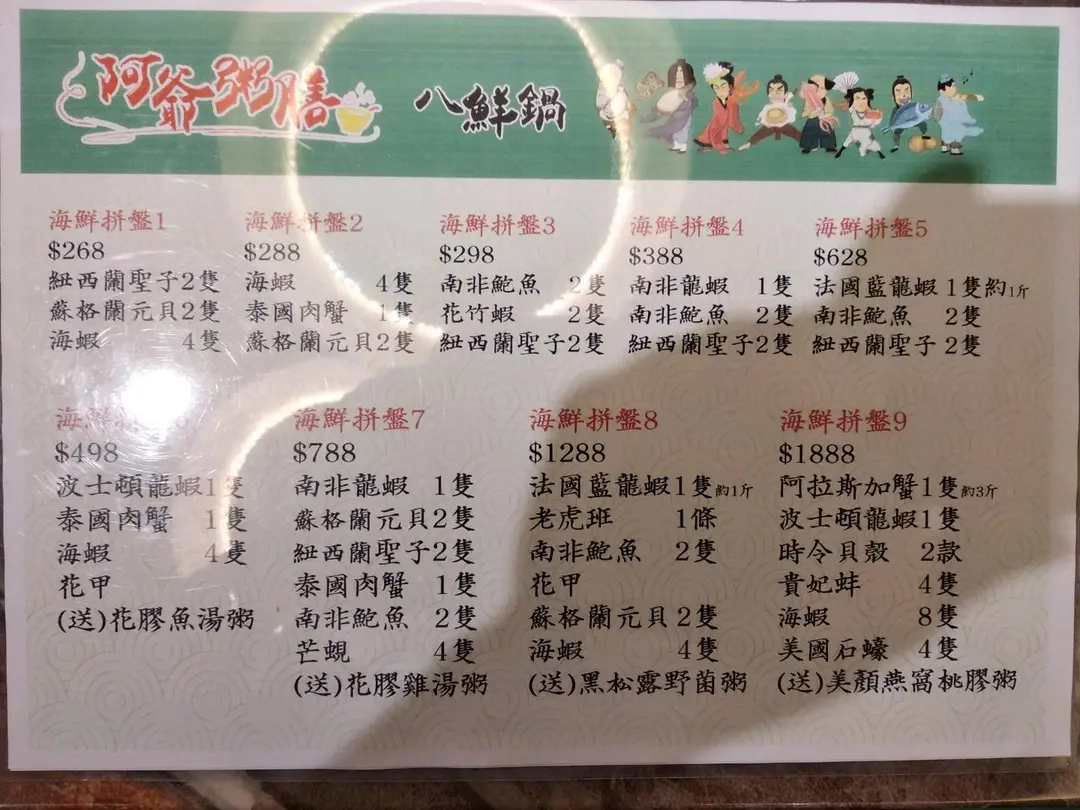 阿爺粥膳
八鮮鍋
海鮮拼盤1
$268
紐西蘭聖子2隻
蘇格蘭元貝2隻
海蝦 4隻
海鮮拼盤2
$288
海蝦 4隻
泰國肉蟹 1隻
蘇格蘭元貝2隻
海鮮拼盤3
$298
南非鮑魚 2隻
花竹蝦 2隻
紐西蘭聖子2隻
海鮮拼盤4
$388
南非龍蝦 1隻
南非鮑魚 2隻
紐西蘭聖子2隻
海鮮拼盤5
$628
法國藍龍蝦1隻約1斤
南非鮑魚 2隻
紐西蘭聖子2隻
海鮮
$498
波士頓龍蝦1隻
泰國肉蟹 1隻
海蝦 4隻
花甲
(送)花膠魚湯粥
海鮮拼盤7
$788
南非龍蝦 1隻
蘇格蘭元貝2隻
紐西蘭聖子2隻
泰國肉蟹 1隻
南非鮑魚 2隻
芒蜆 4隻
(送)花膠雞湯粥
海鮮拼盤8
$1288
法國藍龍蝦1隻約1斤
老虎班 1條
南非鮑魚 2隻
花甲
蘇格蘭元貝2隻
海蝦 4隻
(送)黑松露野菌粥
海鮮拼盤9
$1888
阿拉斯加蟹1隻約3斤
波士頓龍蝦1隻
時令貝殼 2款
貴妃蚌 4隻
海蝦 8隻
美國石蠔 4隻
(送)美顏燕窩桃膠粥